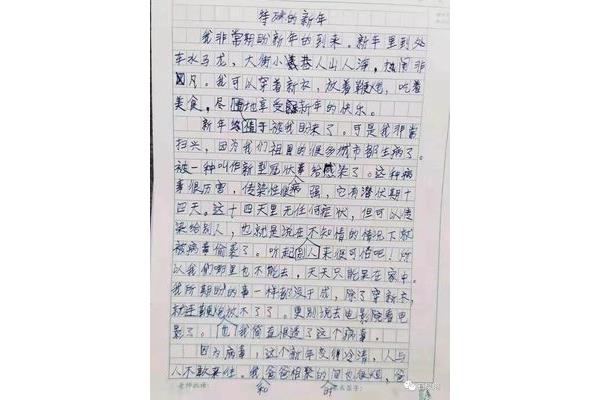 特殊的新年
我非常期盼新年的到来。新年里到处
车水马龙,大街小巷人山人海,热闹非
凡。我可以穿着新衣,放着鞭炮,吃着
美食,尽情地享受新年的快乐。
新年终于被我盼来了。可是我非常
扫兴,因为我们祖国的很多城市都生病了。
被一种叫作新型冠状毒给感染了。这种病
毒很厉害,传染性很强,它有潜伏期十
四天。这十四天里无任何症状,但可以传
染给别人,也就是说在不知情的情况下就
被病毒偷袭了。听起来很可怕吧!所
以我们哪里也不能去,天天只能呆在家中。
我所期盼的事一样都没干成,除了穿新衣,
就连鞭炮放不了了。更别说去电影院看电
影了。我简直恨透了这个病毒。
因为病毒,这个新年变得冷清,人与
人不敢来往。我爸爸相聚的
和
时
老师批语: